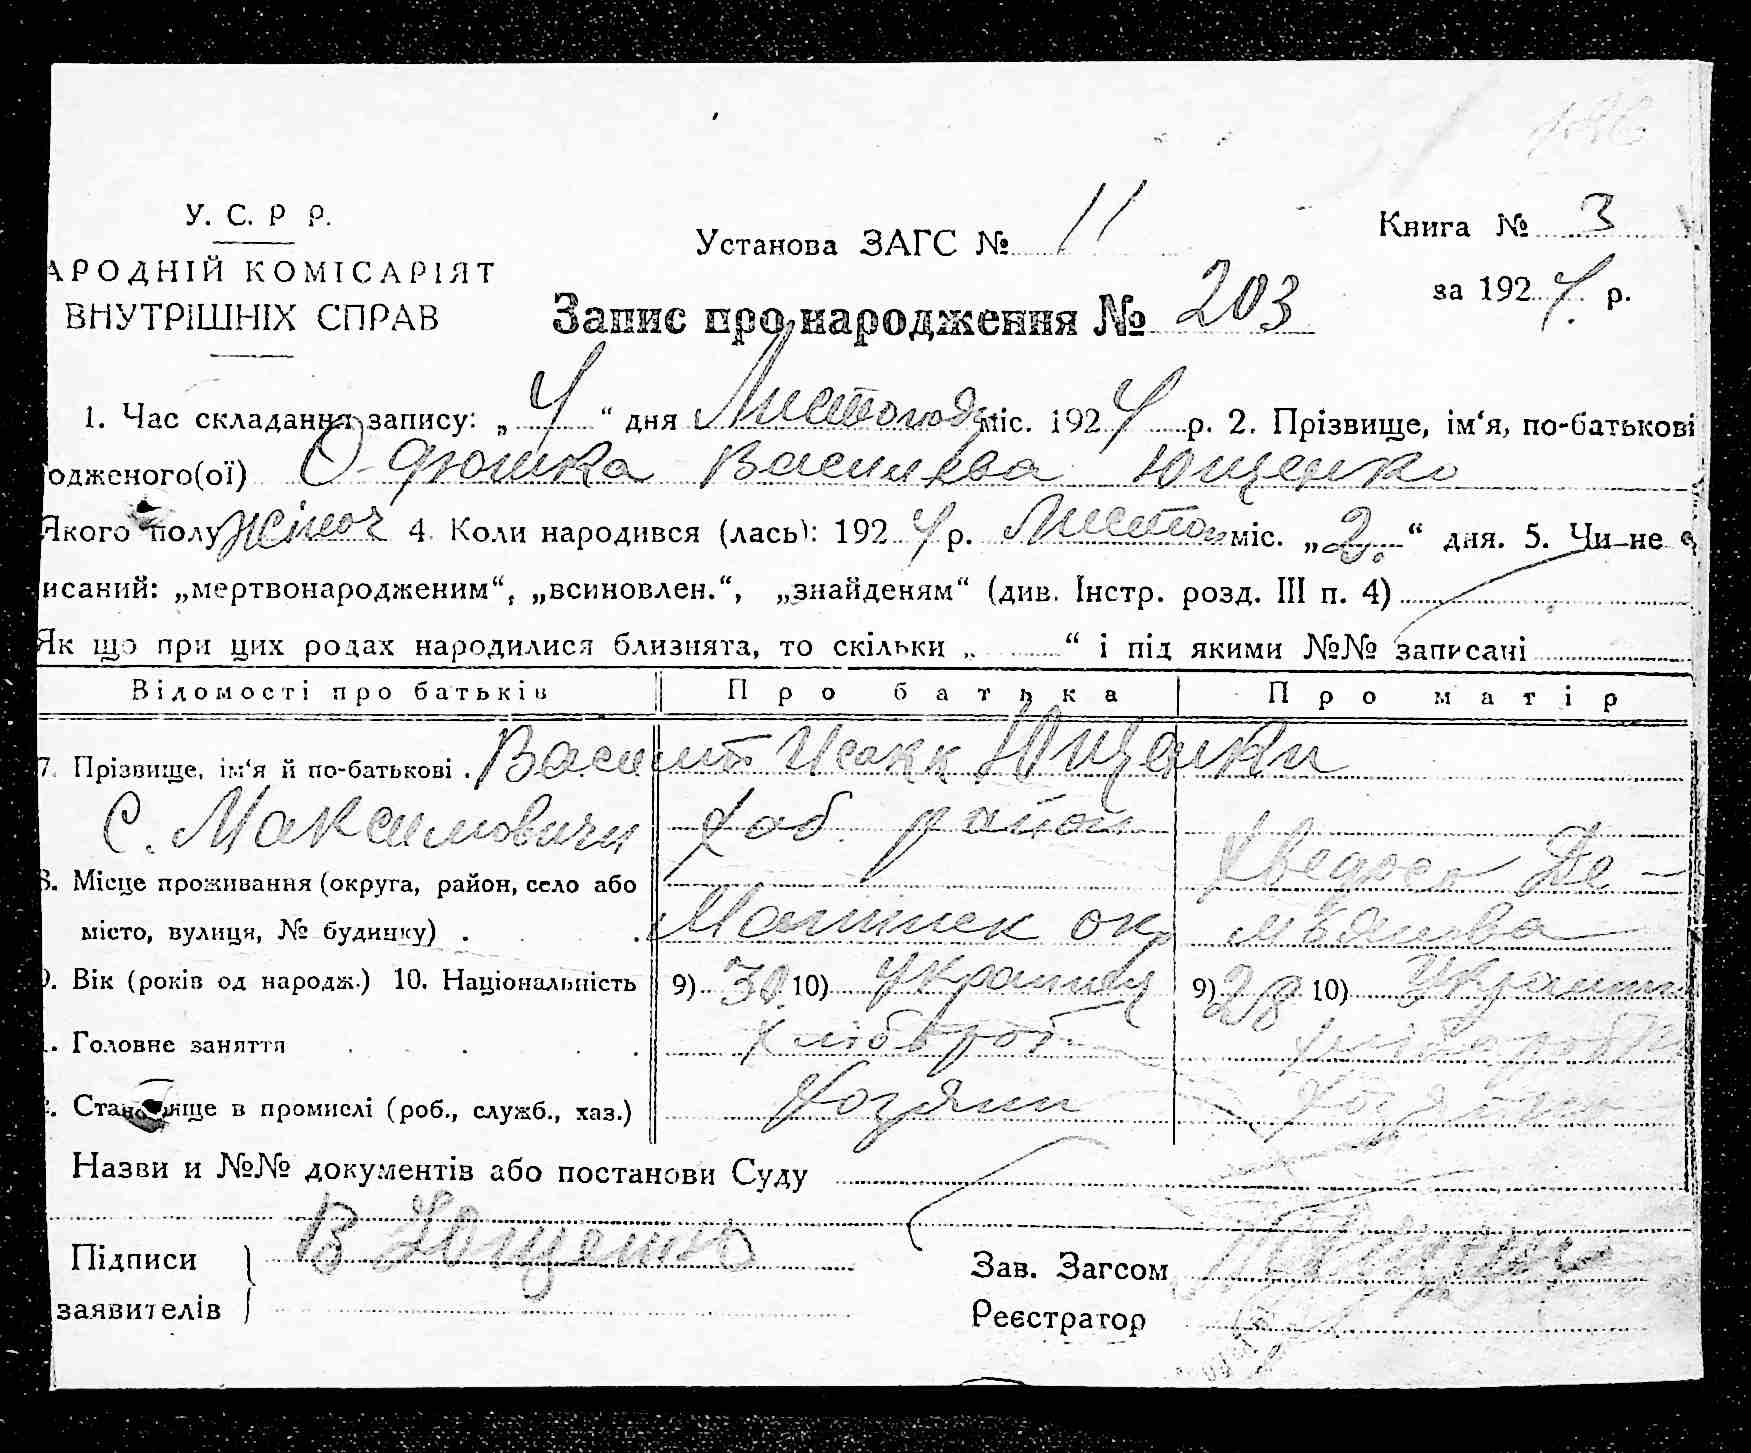 У. С. Р Р.
Установа ЗАГС № 11
Книга № 3
АРОДНІЙ КОМІСАРІЯТ
ВНУТРІШНІХ СПРАВ
за 1924 р.
Запис про народження № 203
1. Час складання запису: „4“ дня міс. 1924 р. 2. Прізвище, ім‘я, по-батькові
одженого(ої) Василева Ющенко
Якого полу жіноч 4. Коли народився (лась): 1924 р. Листоп міс. „2.“ дня. 5. Чи не є
исаний: „мертвонародженим“, „всиновлен.“, „знайденям“ (див. Інстр. розд. III п. 4)
Як що при цих родах народилися близнята, то скільки „ “ і під якими №№ записані
Відомості про батьків Про батька Про матір
7. Прізвище, ім‘я й по-батькові . Васил Исакк Ющенки
С. Максимовичи Хаб район
8. Місце проживання (округа, район, село або Хведося Де-
місто, вулиця, № будинку) . . . ок мьянова
9. Вік (років од народж.) 10. Національність 9) 30 10) Украинец 9) 28 10)
. Головне заняття . . . . . Хлібороб
. Становище в промислі (роб., служб., хаз.) Хозяин
Назви и №№ документів або постанови Суду
Підписи В Ющенко
заявителів
Зав. Загсом
Реєстратор